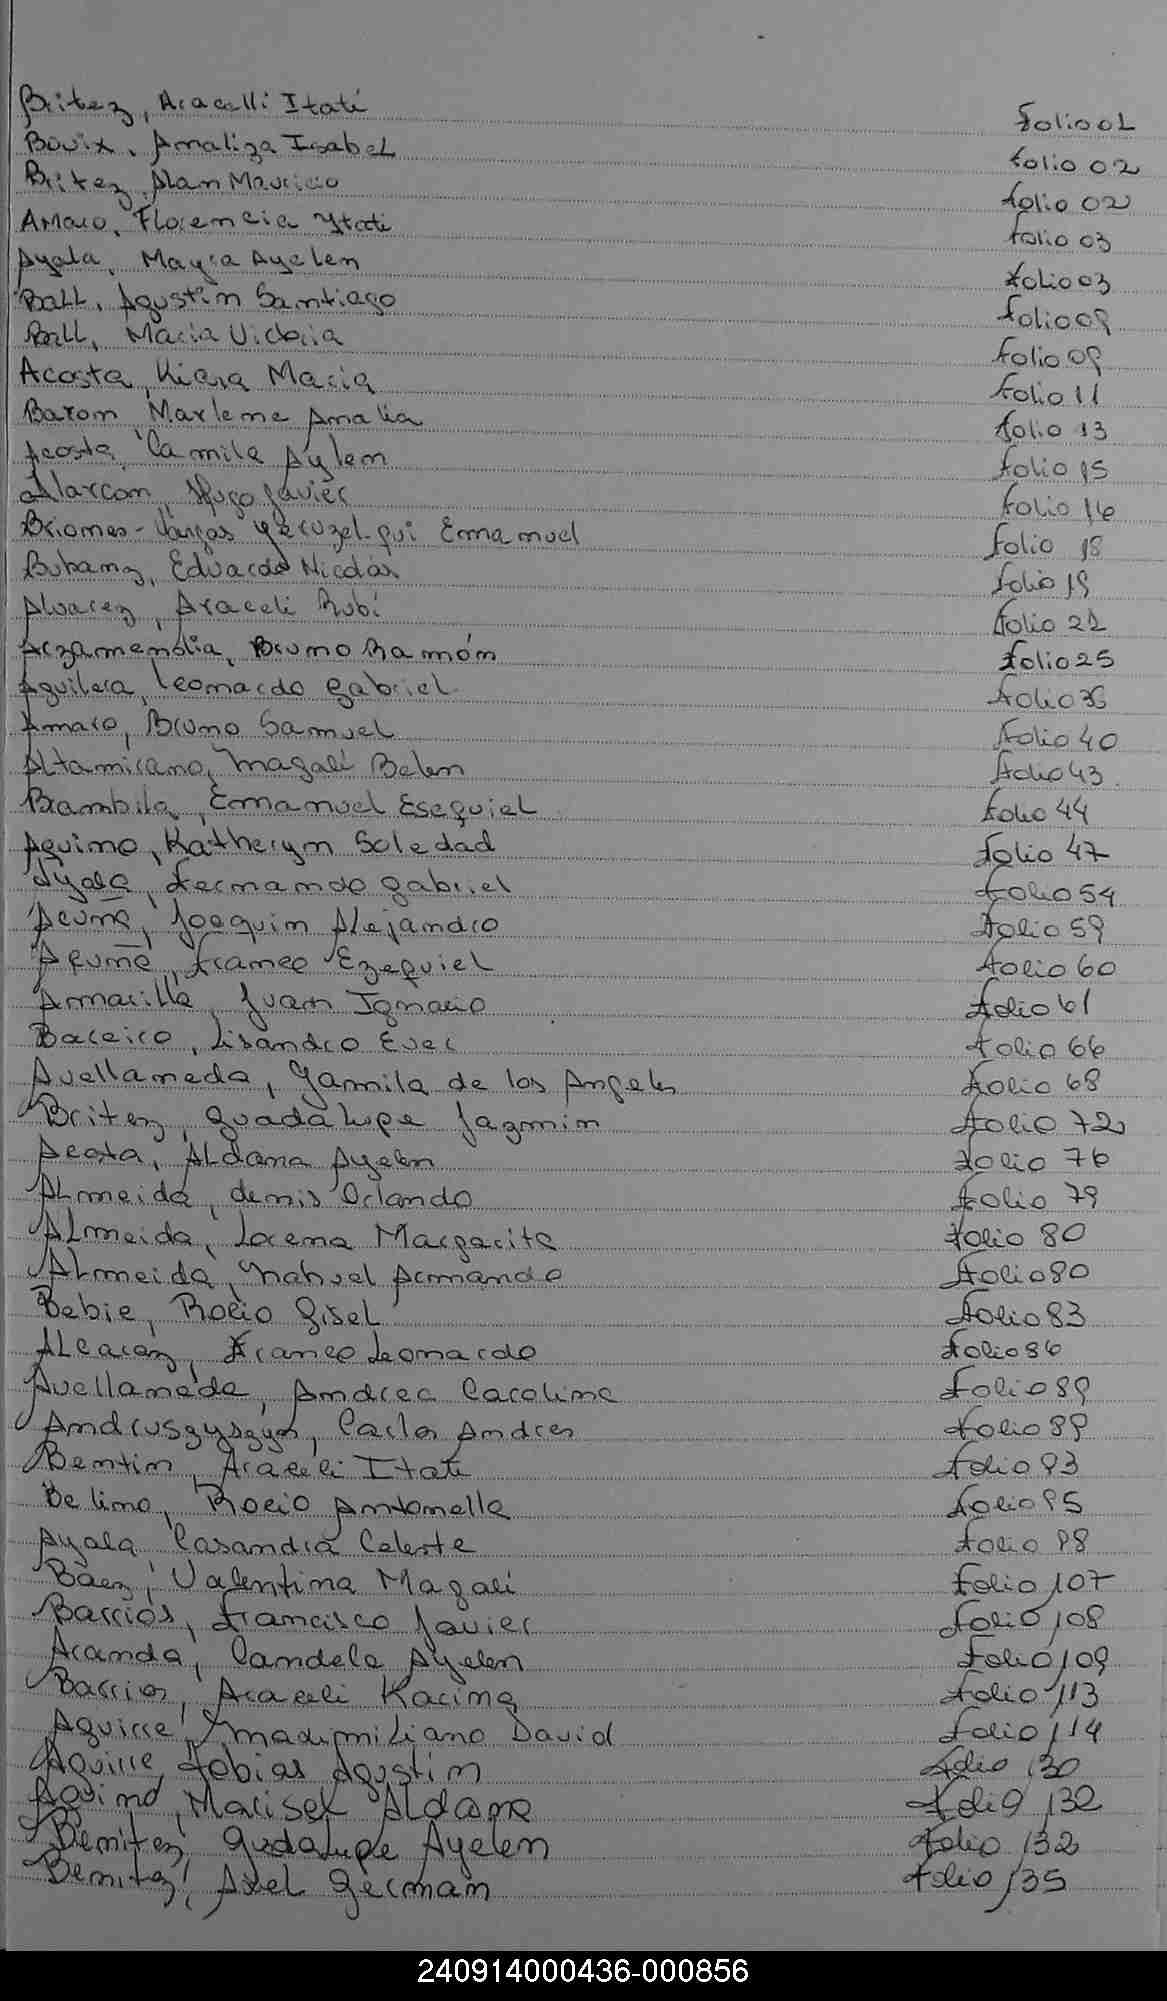 Britez, Aracelli Itatí folio 01
Bovix, Amaliza Isabel folio 02
Britez, Alan Mauricio folio 02
Amaro, Florencia Ytatí folio 03
Ayala, Mayra Ayelen folio 03
Ball, Agustin Santiago folio 09
Ball, Maria Victoria folio 09
Acosta, Kiara Maria folio 11
Baron Marlene Amalia folio 13
Acosta, Camila Aylen folio 15
Alarcon, Hugo Javier folio 16
Briones-Vargas Emanuel folio 18
Eduardo Nicolás folio 19
Alvarez, Araceli Rubí folio 22
Arzamendia, Bruno Ramón folio 25
Aguilera, Leonardo Gabriel folio 36
Amaro, Bruno Samuel folio 40
Altamirano, Magalí Belen folio 43
Brambila, Emanuel Esequiel folio 44
Aquino, Katheryn Soledad folio 47
Ayala, Fernando Gabriel folio 54
Acuña, Joaquin Alejandro folio 59
Acuña, Franco Ezequiel folio 60
Amarilla, Juan Ignacio folio 61
Baceiro, Lisandro Ever folio 66
Avellaneda, Yamila de los Angeles folio 68
Britez, Guadalupe Jazmin folio 72
Acosta, Aldana Ayelen folio 76
Almeida, Denis Orlando folio 79
Almeida, Lorena Margarita folio 80
Almeida, Nahuel Armando folio 80
Bebie, Rocio Gisel folio 83
Alcaraz, Franco Leonardo folio 86
Avellaneda, Andrea Carolina folio 89
Andruszyszyn, Carlos Andres folio 89
Bentin, Araceli Itatí folio 93
Belino, Rocio Antonella folio 95
Ayala, Casandra Celeste folio 98
Baez, Valentina Magalí folio 107
Barrios, Francisco Javier folio 108
Aranda, Candela Ayelen folio 109
Barrios, Araceli Karina folio 113
Aguirre, Maximiliano David folio 114
Aguirre, Tobias Agustín folio 130
Aquino, Marisel Aldana folio 132
Benitez, Guadalupe Ayelen folio 132
Benitez, Axel German folio 135
240914000436-000856